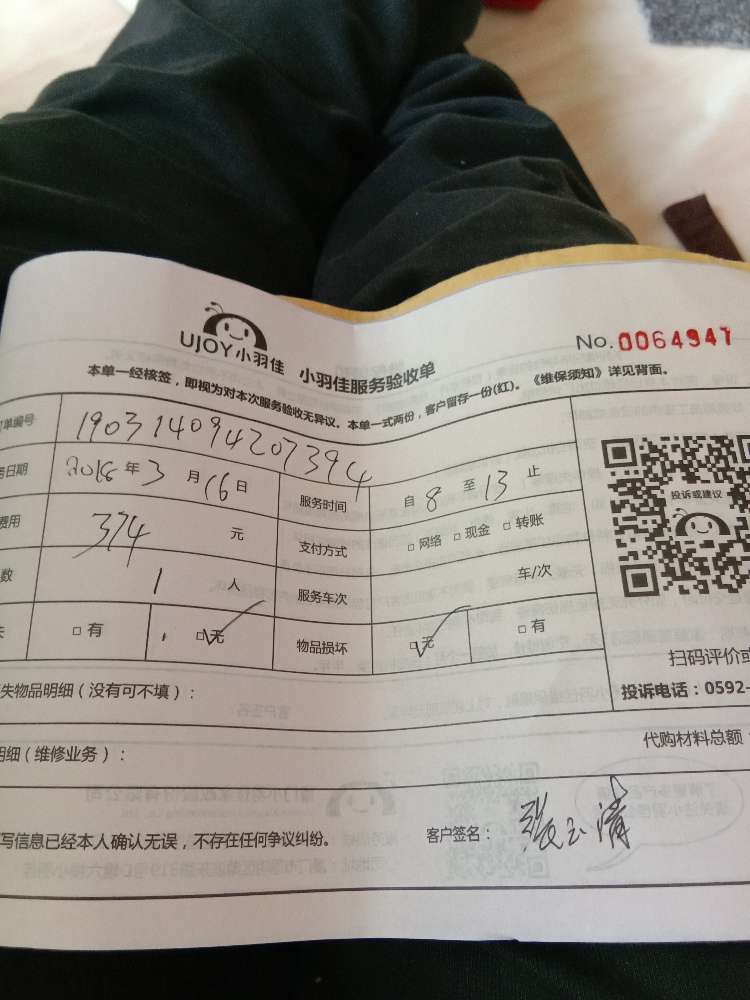 UJOY小羽佳 小羽佳服务验收单
No.0064947
本单一经核签，即视为对本次服务验收无异议。本单一式两份，客户留存一份(红)。《维保须知》详见背面。
单编号 190314094207394
日期 2018年3月16日 服务时间 自8至13止
费用 374元 支付方式 □网络 □现金 □转账
数 1人 服务车次 车/次
失 □有 □无 物品损坏 □无 □有
投诉或建议
扫码评价或
投诉电话：0592-
失物品明细（没有可不填）：
明细（维修业务）：
代购材料总额：
写信息已经本人确认无误，不存在任何争议纠纷。
客户签名：张玉清